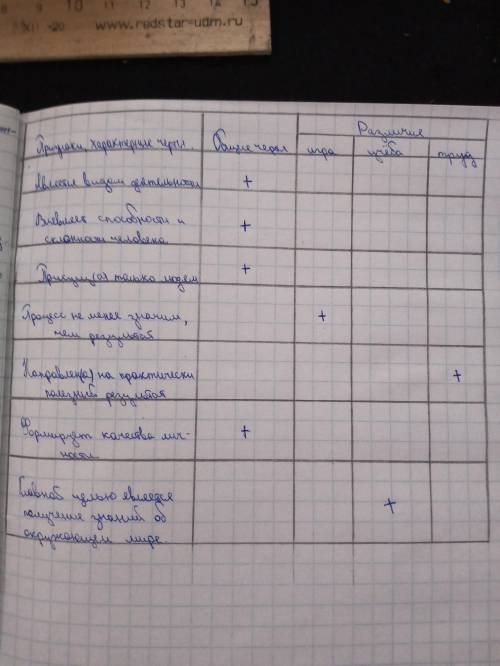 10 11 12 13 14 15
www.redstar-udm.ru
Различия
Признаки, характерные черты
Общие черты
игра
учёба
труд
Является видом деятельности
+
Выявляет способности и
склонности человека
+
Присущ(а) только людям
+
Процесс не менее значим,
чем результат
+
Направлен(а) на практически
полезный результат
+
Формирует качества лич-
ности
+
Главной целью является
получение знаний об
окружающем мире.
+